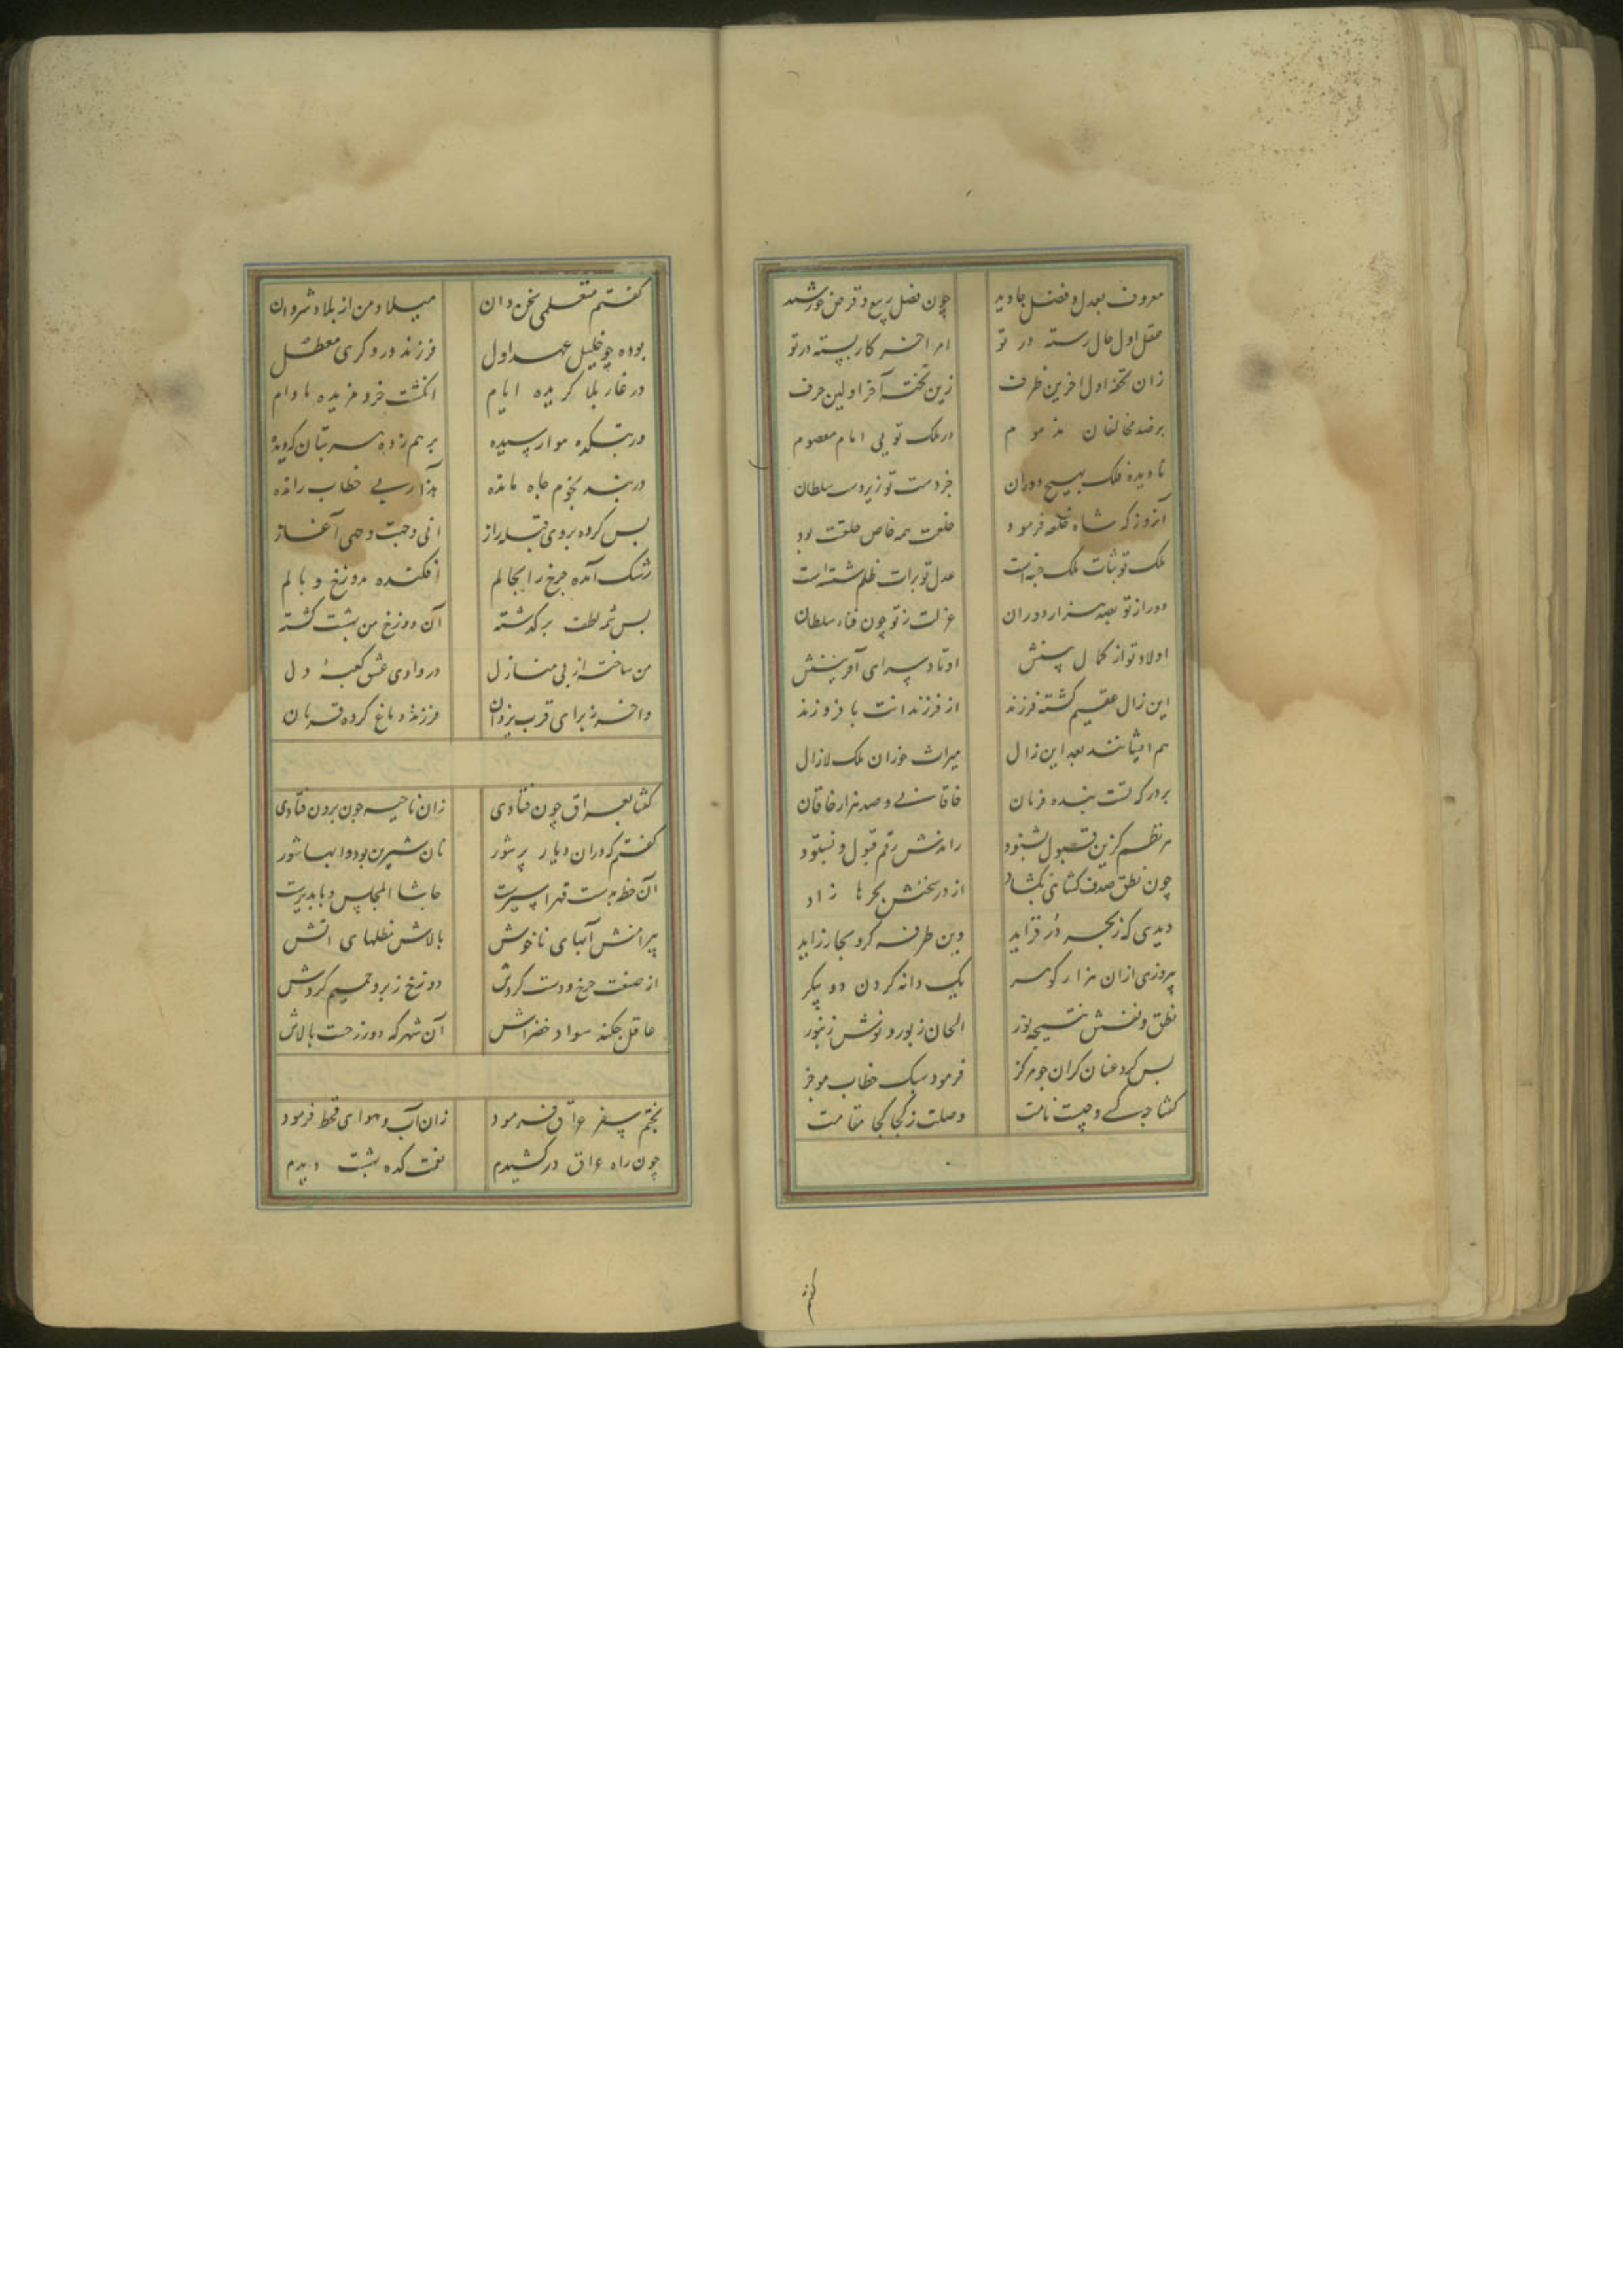 معروف بعدل و فضل جاوید چون فصل ربیع و قرص خورشید
عقل اول حال رسته در تو امر آخر کار بسته در تو
زان تخته اول آخرین ظرف زین تخت آخر اولین حرف
بر ضد مخالفان مذموم در ملک تویی امام معصوم
نادیده فلک بهیچ دوران جز دست تو زیر دست سلطان
آنروز که شاه خلعه فرمود خلعت همه خاص خلقت بود
ملک تو ثبات ملک جسته است عدل تو برات ظلم شسته است
دور از تو بصد هزار دوران عزلت ز تو چون فناء سلطان
اولاد تو از کمال بینش اوتاد سرای آفرینش
این زال عقیم گشته فرزند از فرزندانت با فر و زند
هم ایشانند بعد این زال میراث خوران ملک لازال
بر درگه تست بنده فرمان خاقانی و صد هزار خاقان
هر نظم کزین قبول بشنود راندش رقم قبول و بستود
چون نطق صدف کشائی بکشاد از در سخنش بحرها زاد
دیدی که ز بحر در فزاید وین طرفه کزو بحار زاید
پیروزی ازان هزار گوهر یک دانه گردن دو پیکر
نطق و نفسش نتیجه نور الحان زبور و نوش زنبور
بس کرد عنان گران چو مرکز فرمود سبک خطاب موجز
گفتا چه کسی و چیست نامت وصلت ز کجا کجا مقامت
گفتم
گفتم متعلمی سخن دان میلاد من از بلاد شروان
بوده چو خلیل عهد اول فرزند دروگری معطل
در غار بلا گزیده ایام انگشت خرد مزیده مادام
در بتکده هوا رسیده بر هم زده سر بتان
در بند نجوم جاه مانده هذا ربی خطاب رانده
بس کرده بروی قبله راز انی وجهت وجهی آغاز
رشک آمده چرخ را بحالم افکنده بدوزخ وبالم
بس شمه لطف برگذشته آن دوزخ من بهشت گشته
من ساخته از پی منازل در وادی عشق کعبهٔ دل
واخر ز برای قرب یزدان فرزند دماغ کرده قربان
گفتا بعراق چون فتادی زان ناحیه چون برون فتادی
گفتم که دران دیار پر شور نان شیرین بود و ابها شور
آن خطه بدست قهر اسیرست حاشا المجلس وبا پذیرست
پیرامنش آبهای ناخوش بالاش مظلهای اتش
از صنعت چرخ و دست کردش دوزخ زبر و جحیم گردش
عاقل چکند سواد خضراش آن شهر که دوزخست بالاش
بختم سفر عراق فرمود زان آب و هوای قحط فرمود
چون راه عراق درکشیدم نعمت کده بهشت دیدم